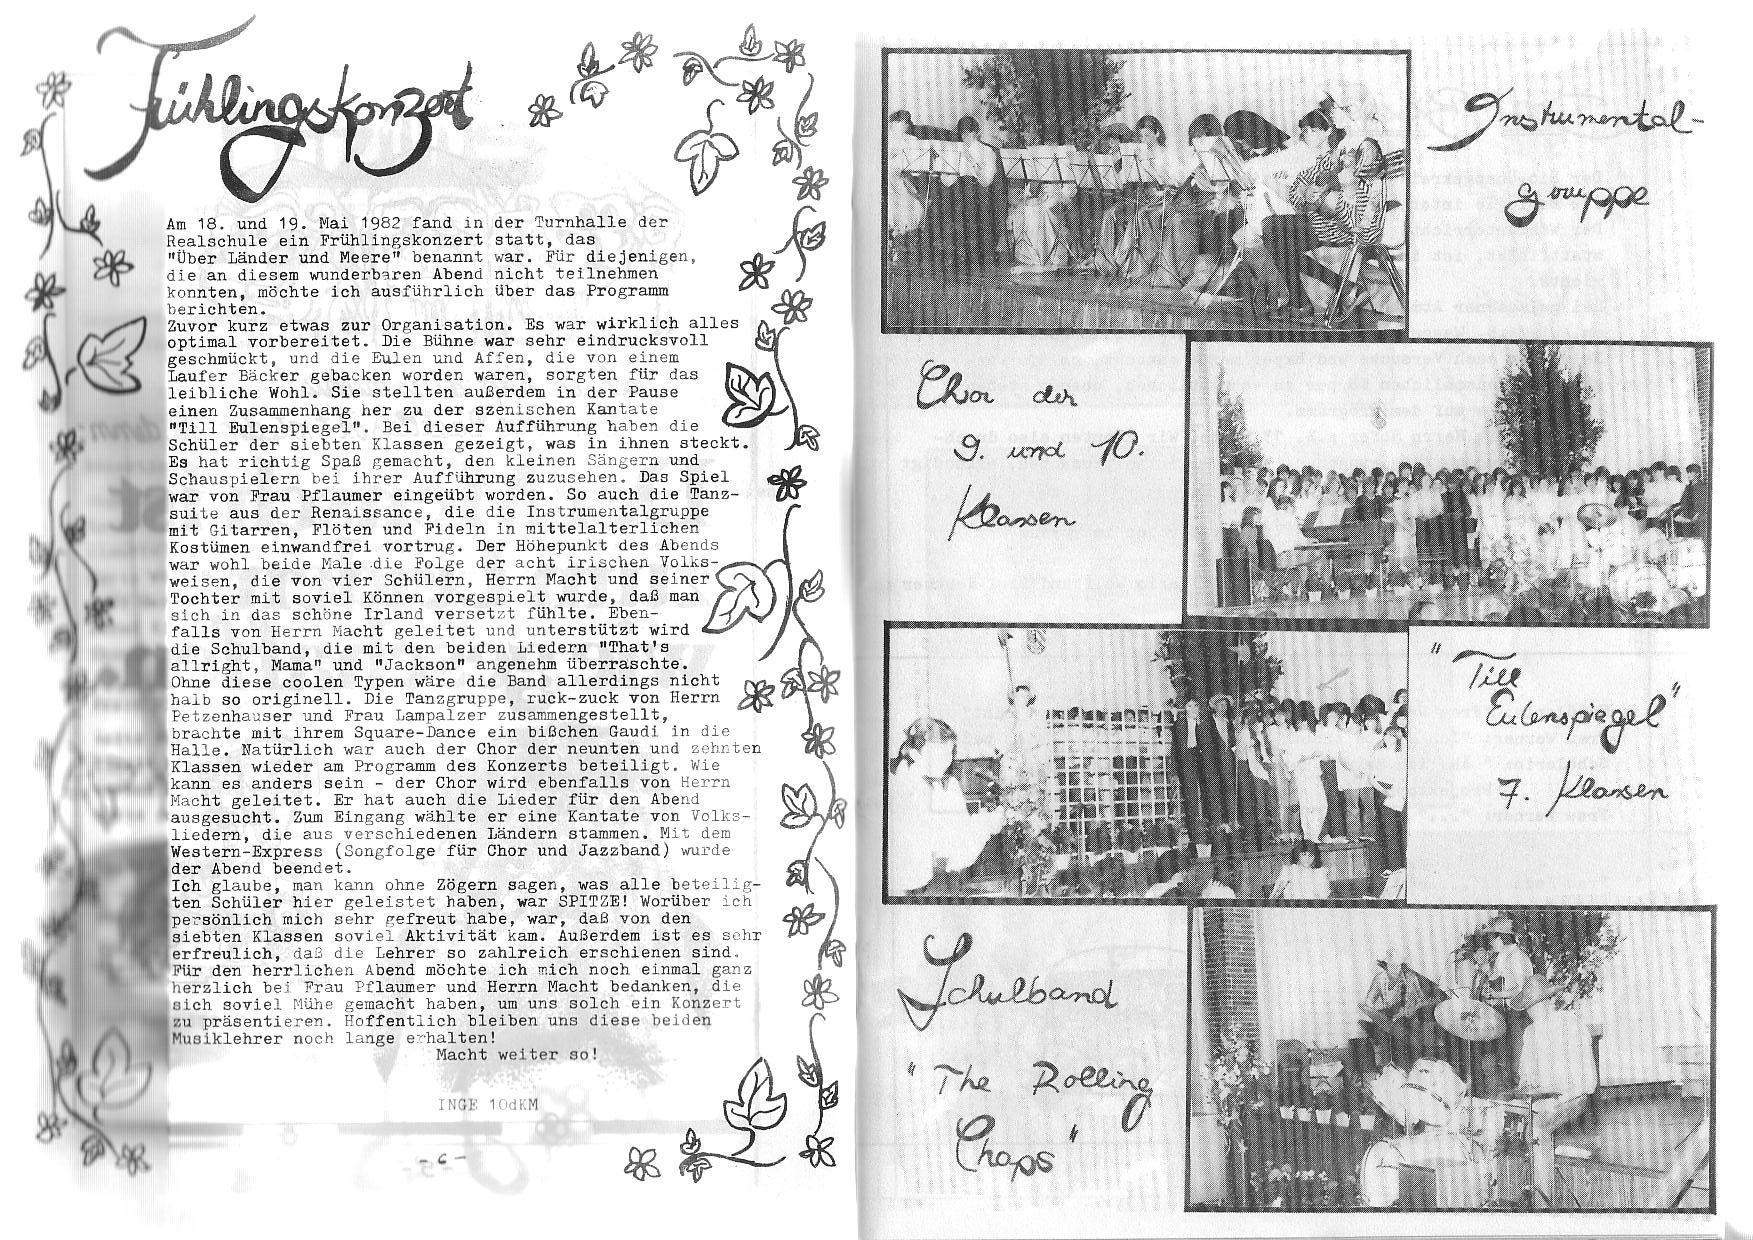 Frühlingskonzert
Am 18. und 19. Mai 1982 fand in der Turnhalle der
Realschule ein Frühlingskonzert statt, das
"Über Länder und Meere" benannt war. Für diejenigen,
die an diesem wunderbaren Abend nicht teilnehmen
konnten, möchte ich ausführlich über das Programm
berichten.
Zuvor kurz etwas zur Organisation. Es war wirklich alles
optimal vorbereitet. Die Bühne war sehr eindrucksvoll
geschmückt, und die Eulen und Affen, die von einem
Laufer Bäcker gebacken worden waren, sorgten für das
leibliche Wohl. Sie stellten außerdem in der Pause
einen Zusammenhang her zu der szenischen Kantate
"Till Eulenspiegel". Bei dieser Aufführung haben die
Schüler der siebten Klassen gezeigt, was in ihnen steckt.
Es hat richtig Spaß gemacht, den kleinen Sängern und
Schauspielern bei ihrer Aufführung zuzusehen. Das Spiel
war von Frau Pflaumer eingeübt worden. So auch die Tanz-
suite aus der Renaissance, die die Instrumentalgruppe
mit Gitarren, Flöten und Fideln in mittelalterlichen
Kostümen einwandfrei vortrug. Der Höhepunkt des Abends
war wohl beide Male die Folge der acht irischen Volks-
weisen, die von vier Schülern, Herrn Macht und seiner
Tochter mit soviel Können vorgespielt wurde, daß man
sich in das schöne Irland versetzt fühlte. Eben-
falls von Herrn Macht geleitet und unterstützt wird
die Schulband, die mit den beiden Liedern "That's
allright, Mama" und "Jackson" angenehm überraschte.
Ohne diese coolen Typen wäre die Band allerdings nicht
halb so originell. Die Tanzgruppe, ruck-zuck von Herrn
Petzenhauser und Frau Lampalzer zusammengestellt,
brachte mit ihrem Square-Dance ein bißchen Gaudi in die
Halle. Natürlich war auch der Chor der neunten und zehnten
Klassen wieder am Programm des Konzerts beteiligt. Wie
kann es anders sein - der Chor wird ebenfalls von Herrn
Macht geleitet. Er hat auch die Lieder für den Abend
ausgesucht. Zum Eingang wählte er eine Kantate von Volks-
liedern, die aus verschiedenen Ländern stammen. Mit dem
Western-Express (Songfolge für Chor und Jazzband) wurde
der Abend beendet.
Ich glaube, man kann ohne Zögern sagen, was alle beteilig-
ten Schüler hier geleistet haben, war SPITZE! Worüber ich
persönlich mich sehr gefreut habe, war, daß von den
siebten Klassen soviel Aktivität kam. Außerdem ist es sehr
erfreulich, daß die Lehrer so zahlreich erschienen sind.
Für den herrlichen Abend möchte ich mich noch einmal ganz
herzlich bei Frau Pflaumer und Herrn Macht bedanken, die
sich soviel Mühe gemacht haben, um uns solch ein Konzert
zu präsentieren. Hoffentlich bleiben uns diese beiden
Musiklehrer noch lange erhalten!
Macht weiter so!
INGE 10dKM
- 6 -
Instrumental-
gruppe
Chor der
9. und 10.
Klassen
"Till
Eulenspiegel"
7. Klassen
Schulband
"The Rolling
Chaps"